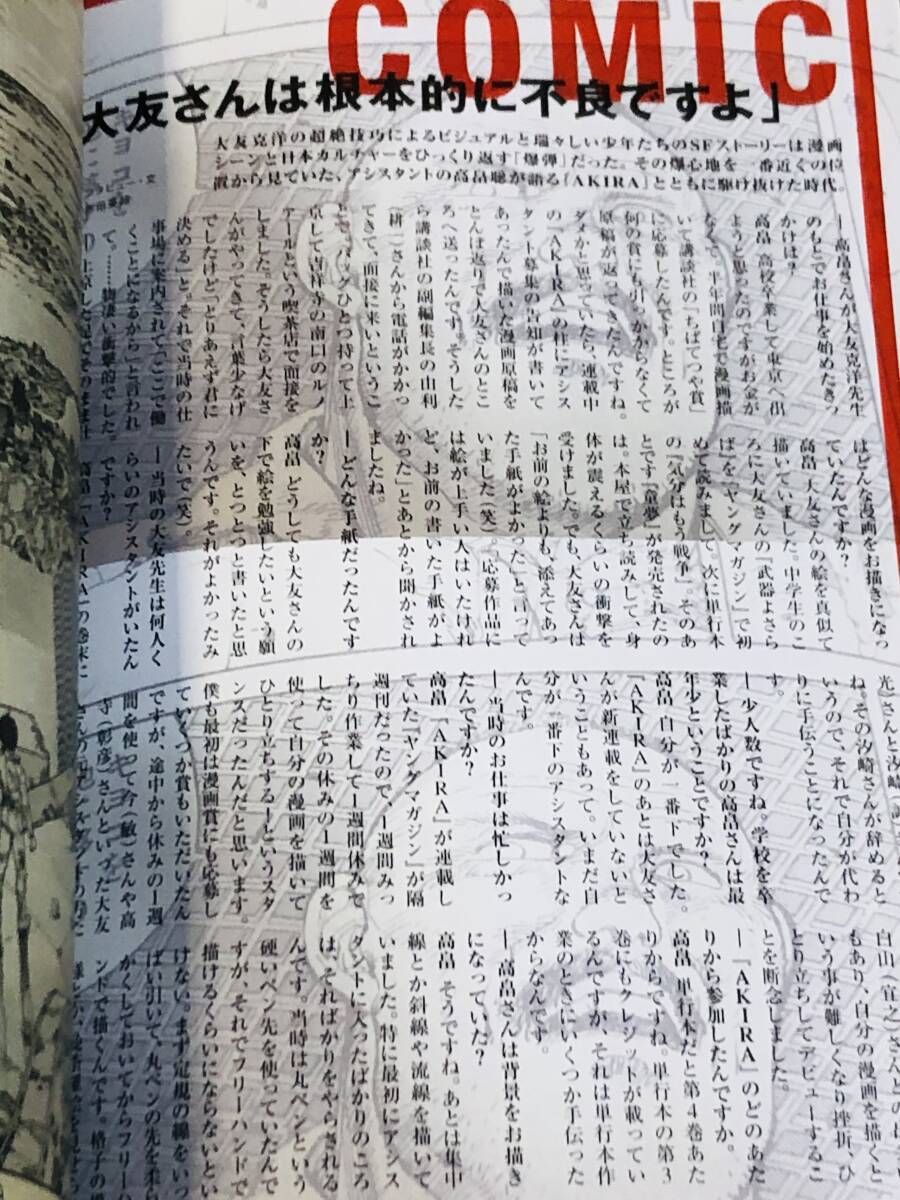 COMIC
大友さんは根本的に不良ですよ」
大友克洋の超絶技巧によるビジュアルと瑞々しい少年たちのSFストーリーは漫画
シーンと日本カルチャーをひっくり返す「爆弾」だった。その爆心地を一番近くの位
置から見ていた、アシスタントの高畠聡が語る『AKIRA』とともに駆け抜けた時代。
―高畠さんが大友克洋先生
のもとでお仕事を始めたきっ
かけは?
高畠 高校卒業して東京へ出
ようと思ったのですがお金が
なくて、半年間自宅で漫画描
いて講談社の「ちばてつや賞」
に応募したんです。ところが
何の賞にも引っかからなくて
原稿が返ってきたんですね。
ダメかと思っていたら、連載中
の『AKIRA』の柱にアシス
タント募集の告知が書いて
あったんで描いた漫画原稿を
とんぼ返りで大友さんのとこ
ろへ送ったんです。そうした
ら講談社の副編集長の由利
(耕一)さんから電話がかかっ
てきて、面接に来いというこ
とで、バッグひとつ持って上
京して吉祥寺の南口のルノ
アールという喫茶店で面接を
しました。そうしたら大友さ
んがやってきて、言葉少なげ
でしたけど「とりあえず君に
決める」と。それで当時の仕
事場に案内されて「ここで働
くことになるから」と言われ
て。……物凄い衝撃的でした。
はどんな漫画をお描きになっ
ていたんですか?
高畠 大友さんの絵を真似て
描いていました。中学生のこ
ろに大友さんの『武器よさら
ば』を『ヤングマガジン』で初
めて読みまして、次に単行本
の『気分はもう戦争』。そのあ
とです『童夢』が発売されたの
は。本屋で立ち読みして、身
体が震えるくらいの衝撃を
受けました。でも、大友さんは
「お前の絵よりも、添えてあっ
た手紙がよかった」と言って
いました(笑)。「応募作品に
は絵が上手い人はいたけれ
ど、お前の書いた手紙がよ
かった」とあとから聞かされ
ましたね。
―どんな手紙だったんです
か?
高畠 どうしても大友さんの
下で絵を勉強したいという願
いを、とつとつと書いたと思
うんです。それがよかったみ
たいで(笑)。
―当時の大友先生は何人く
らいのアシスタントがいたん
ですか?
高畠 『AKIRA』の巻末に
光)さんと汐崎
ね。その汐崎さんが辞めると
いうので、それで自分が代わ
りに手伝うことになったんで
す。
―少人数ですね。学校を卒
業したばかりの高畠さんは最
年少ということですか?
高畠 自分が一番下でした。
『AKIRA』のあとは大友さ
んが新連載をしていないと
いうこともあって。いまだ自
分が一番下のアシスタントな
んです。
―当時のお仕事は忙しかっ
たんですか?
高畠 『AKIRA』が連載し
ていた『ヤングマガジン』が隔
週刊だったので、1週間みっ
ちり作業して1週間休みで
した。その休みの1週間を
使って自分の漫画を描いて
ひとり立ちする―というスタ
ンスだったんだと思います。
僕も最初は漫画賞にも応募し
ていくつか賞もいただいたん
ですが、途中から休みの1週
間を使って今(敏)さんや高
寺(彰彦)さんといった大友
白山(宣之)さんとの
もあり、自分の漫画を描くと
いう事が難しくなり挫折、ひ
とり立ちしてデビューするこ
とを断念しました。
―『AKIRA』のどのあた
りから参加したんですか。
高畠 単行本だと第4巻あた
りからですね。単行本の第3
巻にもクレジットが載ってい
るんですが、それは単行本作
業のときにいくつか手伝った
からなんです。
―高畠さんは背景をお描き
になっていた?
高畠 そうですね。あとは集中
線とか斜線や流線を描いて
いました。特に最初にアシス
タントに入ったばかりのころ
は、そればかりをやらされる
んです。当時は丸ペンという
硬いペン先を使っていたんで
すが、それでフリーハンドで
描けるくらいにならないとい
けない。まず定規の線をいっ
ぱい引いて、丸ペンの先を柔ら
かくしておいてからフリーハ
ンドで描くんです。格子の模